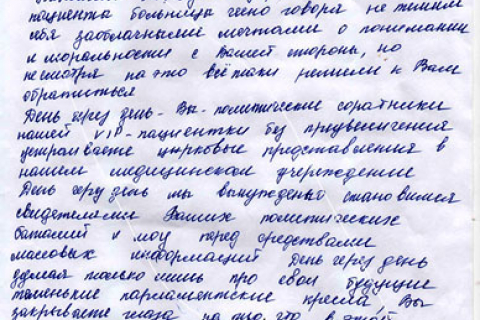 пациента больницы честно говоря не тешим
себя заоблачными мечтами о понимании
и моральности с Вашей стороны, но
несмотря на это всё таки решили к Вам
обратиться
День через день - Вы - политические соратники
нашей VIP-пациентки без преувеличения
устраиваете цирковые представления в
нашем медицинском учереждение
День через день мы вынуждены становимся
свидетелями Ваших политических
баталий и шоу перед средствами
массовых информаций День через день
думая только лишь про свои будущие
тепленькие парламентские кресла Вы
закрываете глаза на то, что в этой